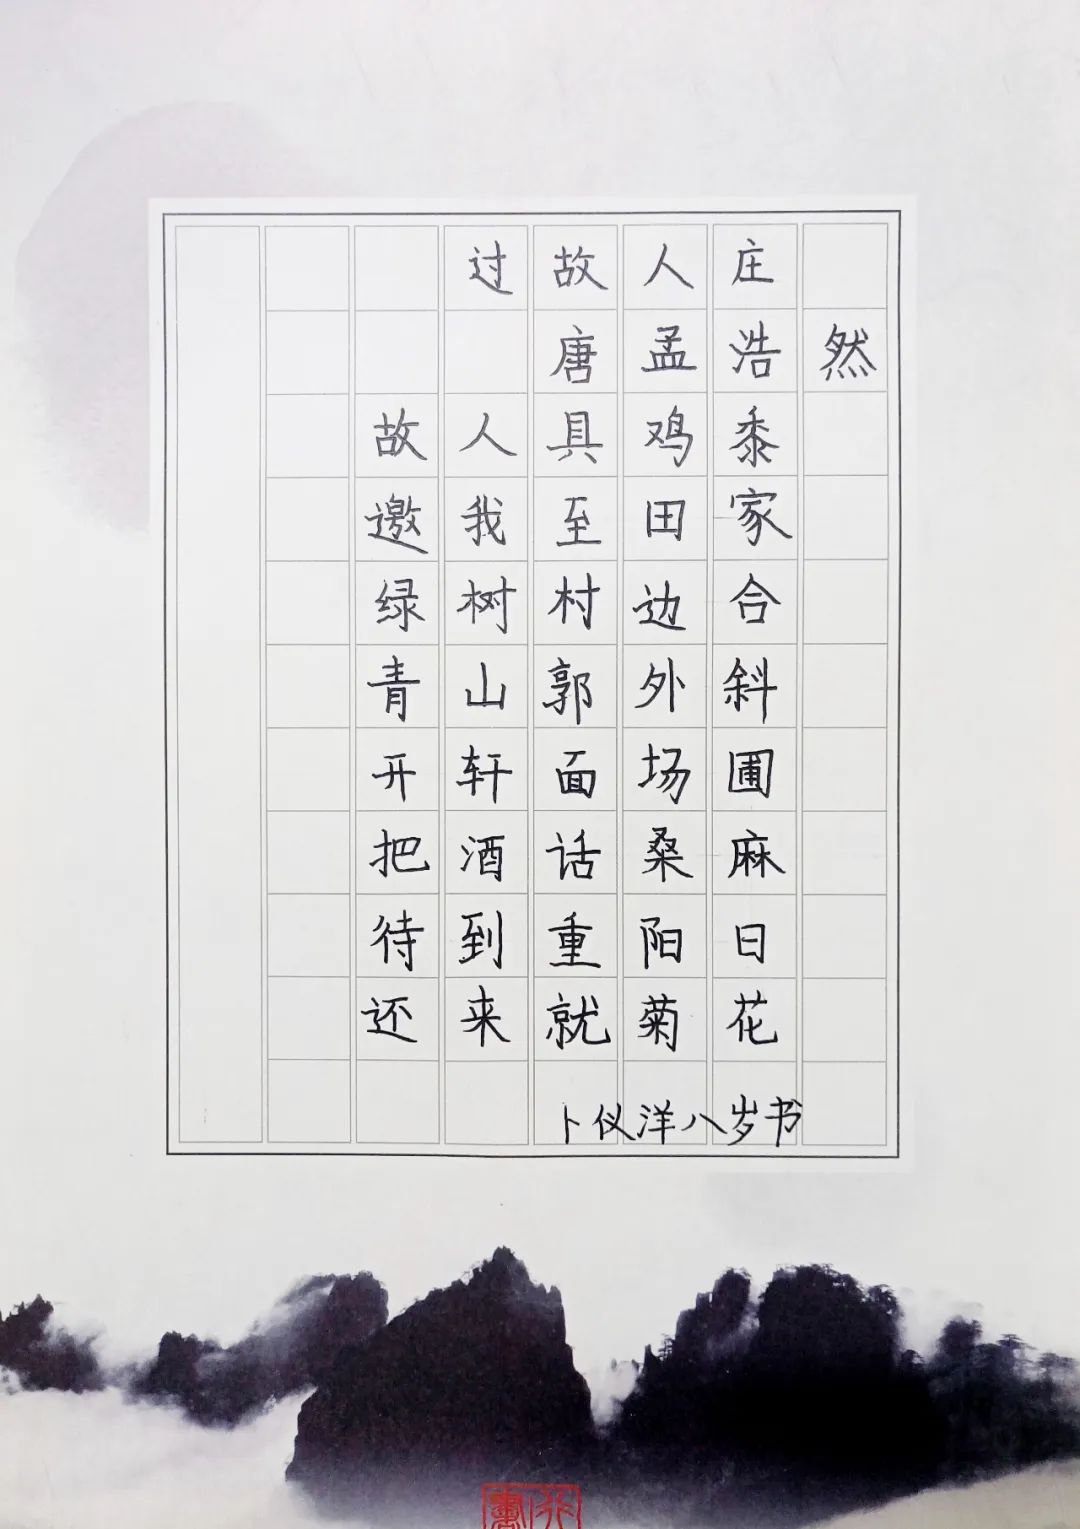 过故人庄
唐孟浩然
故人具鸡黍
邀我至田家
绿树村边合
青山郭外斜
开轩面场圃
把酒话桑麻
待到重阳日
还来就菊花
卜仪洋八岁书